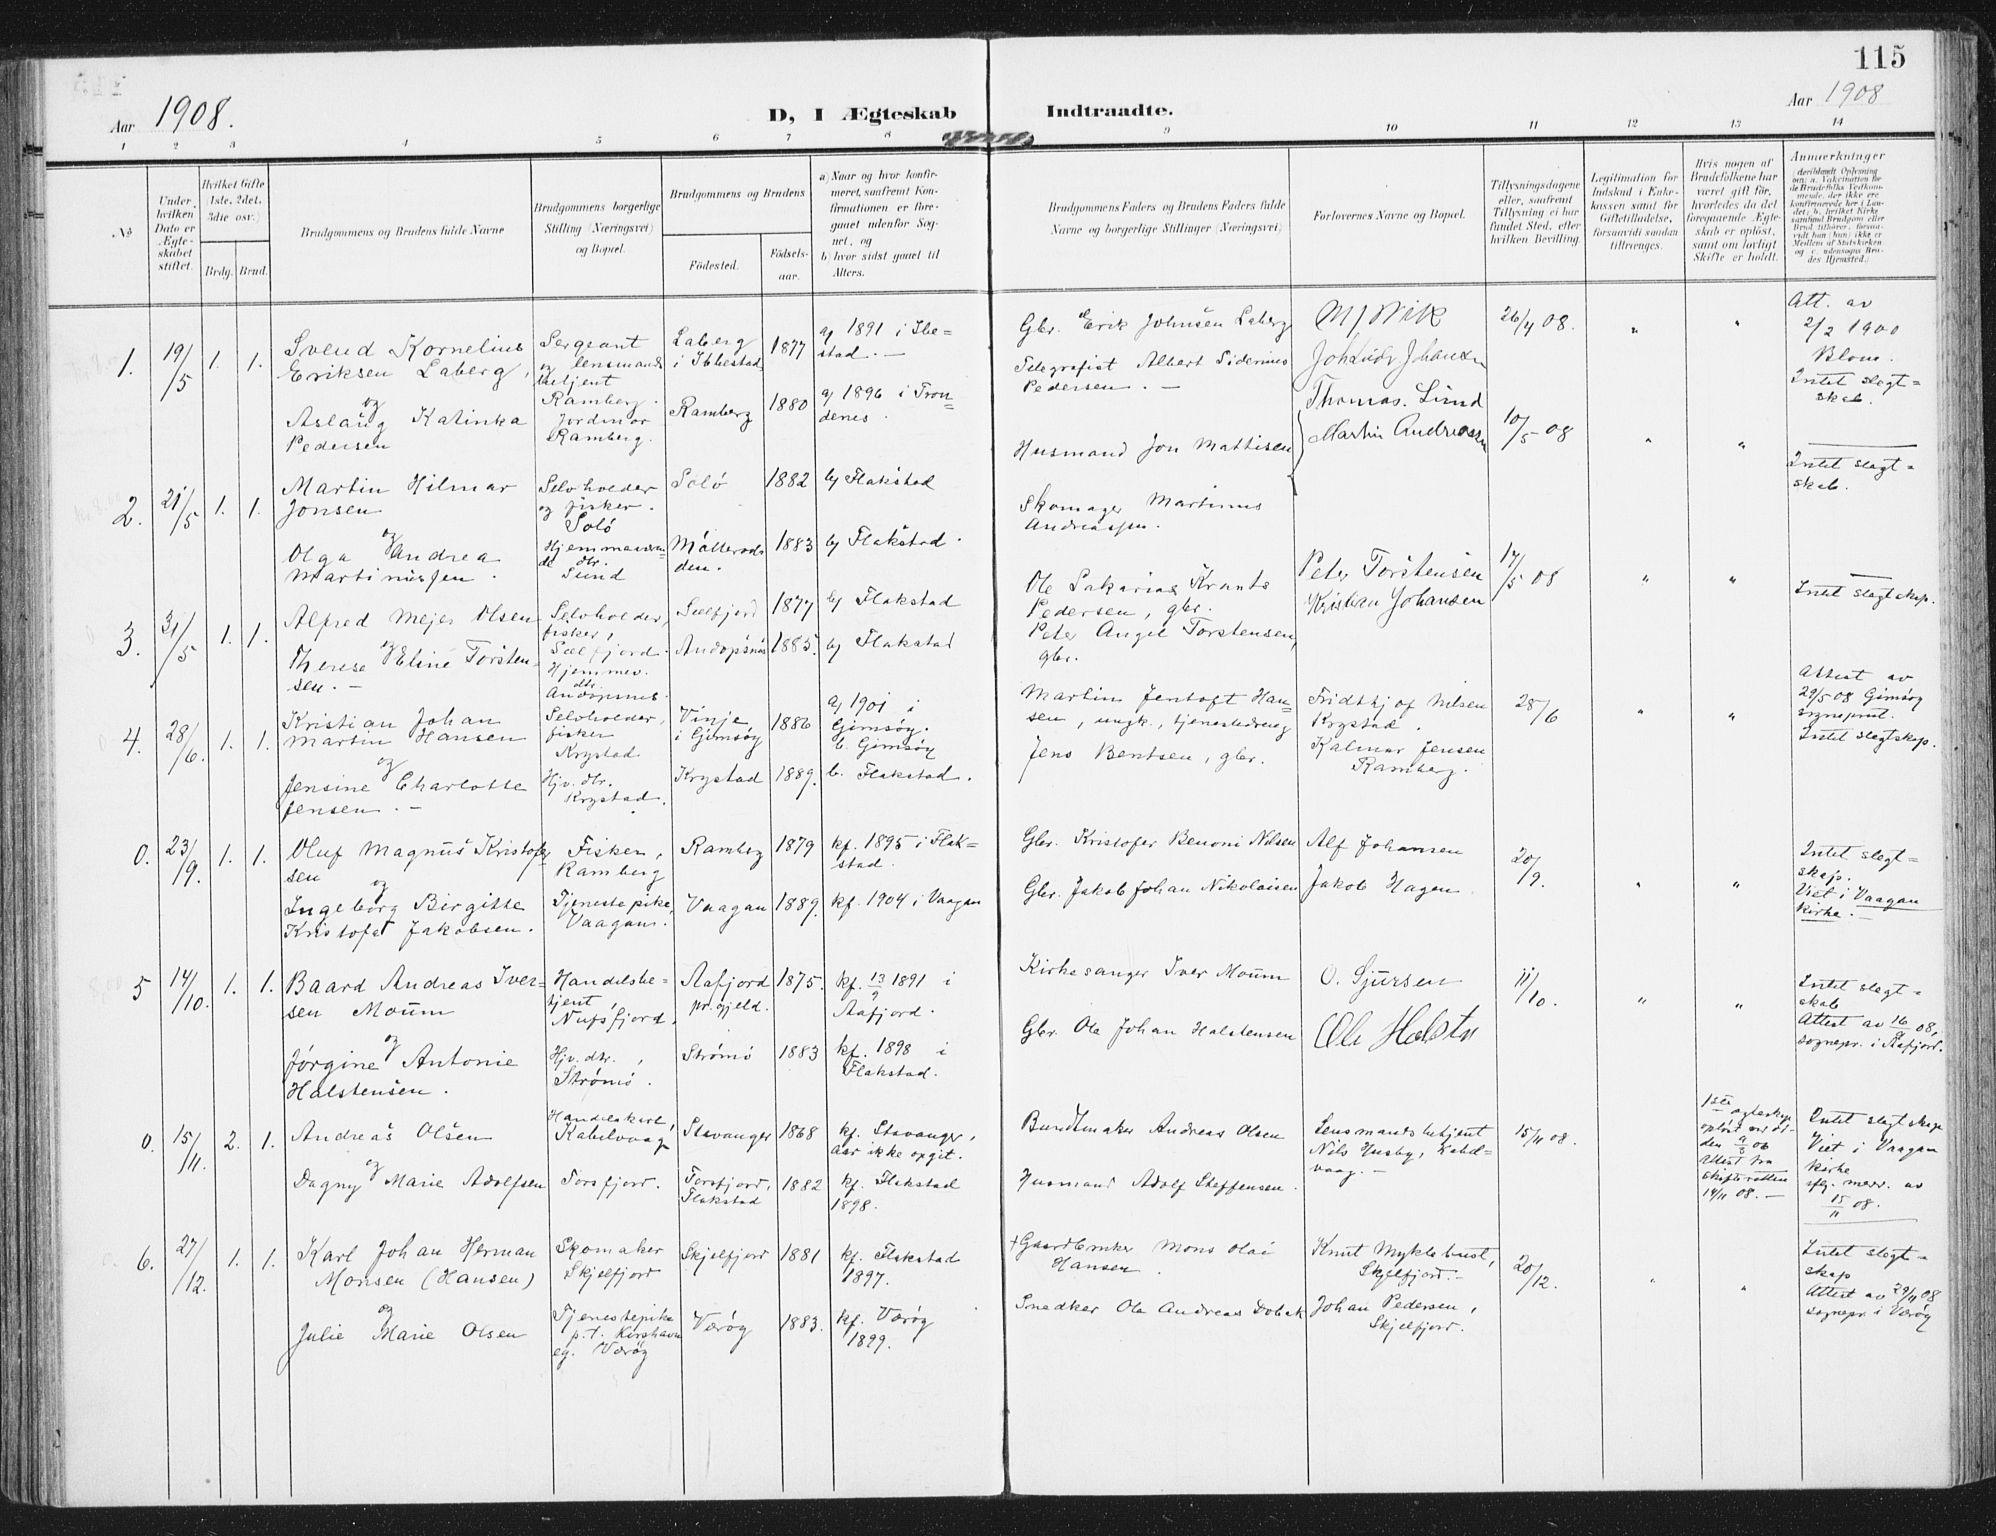 115
Aar 1908.
D, I Ægteskab Indtraadte.
Aar 1908
1 2 3 4 5 6 7 8 9 10 11 12 13 14
No
Under hvilken Dato er Ægteskabet stiftet.
Hvilket Gifte (1ste, 2det, 3die osv.)
Brdg. Brud.
Brudgommens og Brudens fulde Navne
Brudgommens borgerlige Stilling (Næringsvei) og Bopæl.
Brudgommens og Brudens
Fødested.
Fødselsaar.
a) Naar og hvor konfirmeret, saafremt Konfirmationen er foregaaet udenfor Sognet, og
b) hvor sidst gaaet til Alters.
Brudgommens Faders og Brudens Faders fulde Navne og borgerlige Stillinger (Næringsvei)
Forlovernes Navne og Bopæl.
Tillysningsdagene eller, saafremt Tillysning ei har fundet Sted, efter hvilken Bevilling.
Legitimation for Indskud i Enkekassen samt for Giftetilladelse, forsaavidt saadan tiltrænges.
Hvis nogen af Brudefolkene har været gift før, hvorledes da det foregaaende Ægteskab er opløst, samt om lovligt Skifte er holdt.
Anmærkninger
(deriblandt Oplysning om: a. Vakcination for de Brudefolks Vedkommende, der ikke ere konfirmerede her i Landet; b. hvilket Kirkesamfund Brudgom eller Brud tilhører, forsaavidt han (hun) ikke er Medlem af Statskirken og c. udensogns Brudes Hjemsted.)
1. 19/5 1. 1.
Svend Kornelius
Eriksen Laberg,
og
Aslaug Katinka
Pedersen
Sergeant
og lensmands
betjent
Ramberg.
Jordmor
Ramberg.
Laberg
i Ibbestad
1877
a) 1891 i Ibe=
stad. —
Ramberg
1880
a) 1896 i Tron=
denes.
Gbr. Erik Johnsen Laberg
Telegrafist Albert Siderius
Pedersen. —
M J Wik
Joh Ludv Johansen
26/4 08.
" "
Att. av
2/2 1900
Blom.
Intet slegt=
skab.
2. 21/5 1. 1.
Martin Hilmar
Jonsen
og
Olga Andrea
Martinussen.
Selvhoeder
og fisker.
Solö
Hjemmeværen-
de dtr.
Sund
Solö
1882
b) Flakstad
Möllerod-
den.
1883
b) Flakstad.
Husmand Jon Mattisen
Skomager Martinus
Andreassen.
Thomas. Lund
Martin Andreasen
10/5 08
" "
Intet slegt=
skab.
3. 31/5 1. 1.
Alfred Mejer Olsen
og
Therese Eline Torsten-
sen. —
Selvhoeder,
fisker,
Sælfjord.
Hjemmev.
dtr.
Andopsnes.
Sælfjord
1877
b) Flakstad
Andopsnes
1885.
b) Flakstad
Ole Sakarias Krants
Pedersen, gbr.
Peter Angel Torstensen,
gbr.
Peter Torstensen
Kristian Johansen
17/5 08
" "
Intet slegtskap.
4. 28/6. 1. 1.
Kristian Johan
Martin Hansen
og
Jensine Charlotte
Jensen. —
Selvhoeder,
fisker
Krystad
Hjv. dtr.
Krystad.
Vinje
i Gimsøy
1886
a) 1901 i
Gimsøy.
b. Gimsøy
Krystad
1889.
b. Flakstad.
Martin Jentoft Han-
sen, ungk., tjenestedreng
Jens Bentsen, gbr.
Fridthjof Nilsen
Krystad.
Kalmar Jensen
Ramberg.
28/6
" "
Attest av
29/5 08 Gimsöy
sogneprest.
Intet slegtskap.
0. 23/9. 1. 1.
Oluf Magnus Kristofer
sen
og
Ingeborg Birgitte
Kristofa Jakobsen.
Fisker,
Ramberg
Tjenestepike,
Vaagan.
Ramberg
1879
kf. 1895 i Flak=
stad.
Vaagan
1889.
kf. 1904 i Vaagan
Gbr. Kristofer Benoni Nilsen
Gbr. Jakob Johan Nikolaisen
Alf Johansen
Jakob Hagen
20/9.
" "
Intet slegt=
skap.
Viet i Vaagan
kirke. —
5 14/10. 1. 1.
Baard Andreas Iver=
sen Moum
og
Jørgine Antonie
Halstensen.
Handelsbe-
tjent
Nufsfjord.
Hjv. dtr.,
Strömö.
Aafjord
pr.gjeld.
1875.
kf. 13/9 1891 i
Aafjord.
Strömö
1883
kf. 1898 i
Flakstad.
Kirkesanger Iver Moum
Gbr. Ole Johan Halstensen
O. Sjursen
Ole Halsten
11/10.
" "
Intet slegt=
skab
Attest av 16/9 08,
sognepr. i Aafjord.
0. 15/11. 2. 1.
Andreas Olsen
og
Dagny Marie Adolfsen
Handelskarl,
Kabelvaag
Torsfjord.
Stavanger
1868
kf. Stavanger,
aar ikke opgit.
Torsfjord,
Flakstad
1882
kf. Flakstad
1898.
Buntmaker Andreas Olsen
Husmand Adolf Steffensen.
Lensmandsbetjent
Nils Husby, Kabel-
vaag. —
15/11 08.
1ste egteskap
oplöst ved dö-
den 9/3 06
Attest fra
skifteretten
14/11 08. —
Intet slegtskap
Viet i Vaagan
kirke
iflg. medd. av
15/11 08.
6. 27/12. 1. 1.
Karl Johan Herman
Monsen (Hansen)
og
Julie Marie Olsen
Skomaker
Skjelfjord
Tjenestepike
p.t. Kirshavn
eg. Værøy
Skjelfjord
1881
kf. Flakstad
1897.
Værøy
1883.
kf. Værøy
1899.
+Gaardbruker Mons Olai
Hansen.
Snedker Ole Andreas Dobak
Knut Myklebust,
Skjelfjord.—
Johan Pedersen,
Skjelfjord.
20/12.
" "
Intet slegt=
skap
Attest av 29/11 08
sognepr. i Værøy